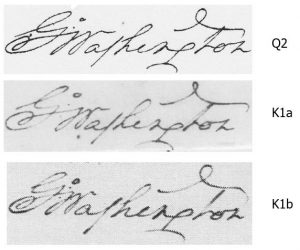 G:Washington Q2
G:Washington K1a
G:Washington K1b